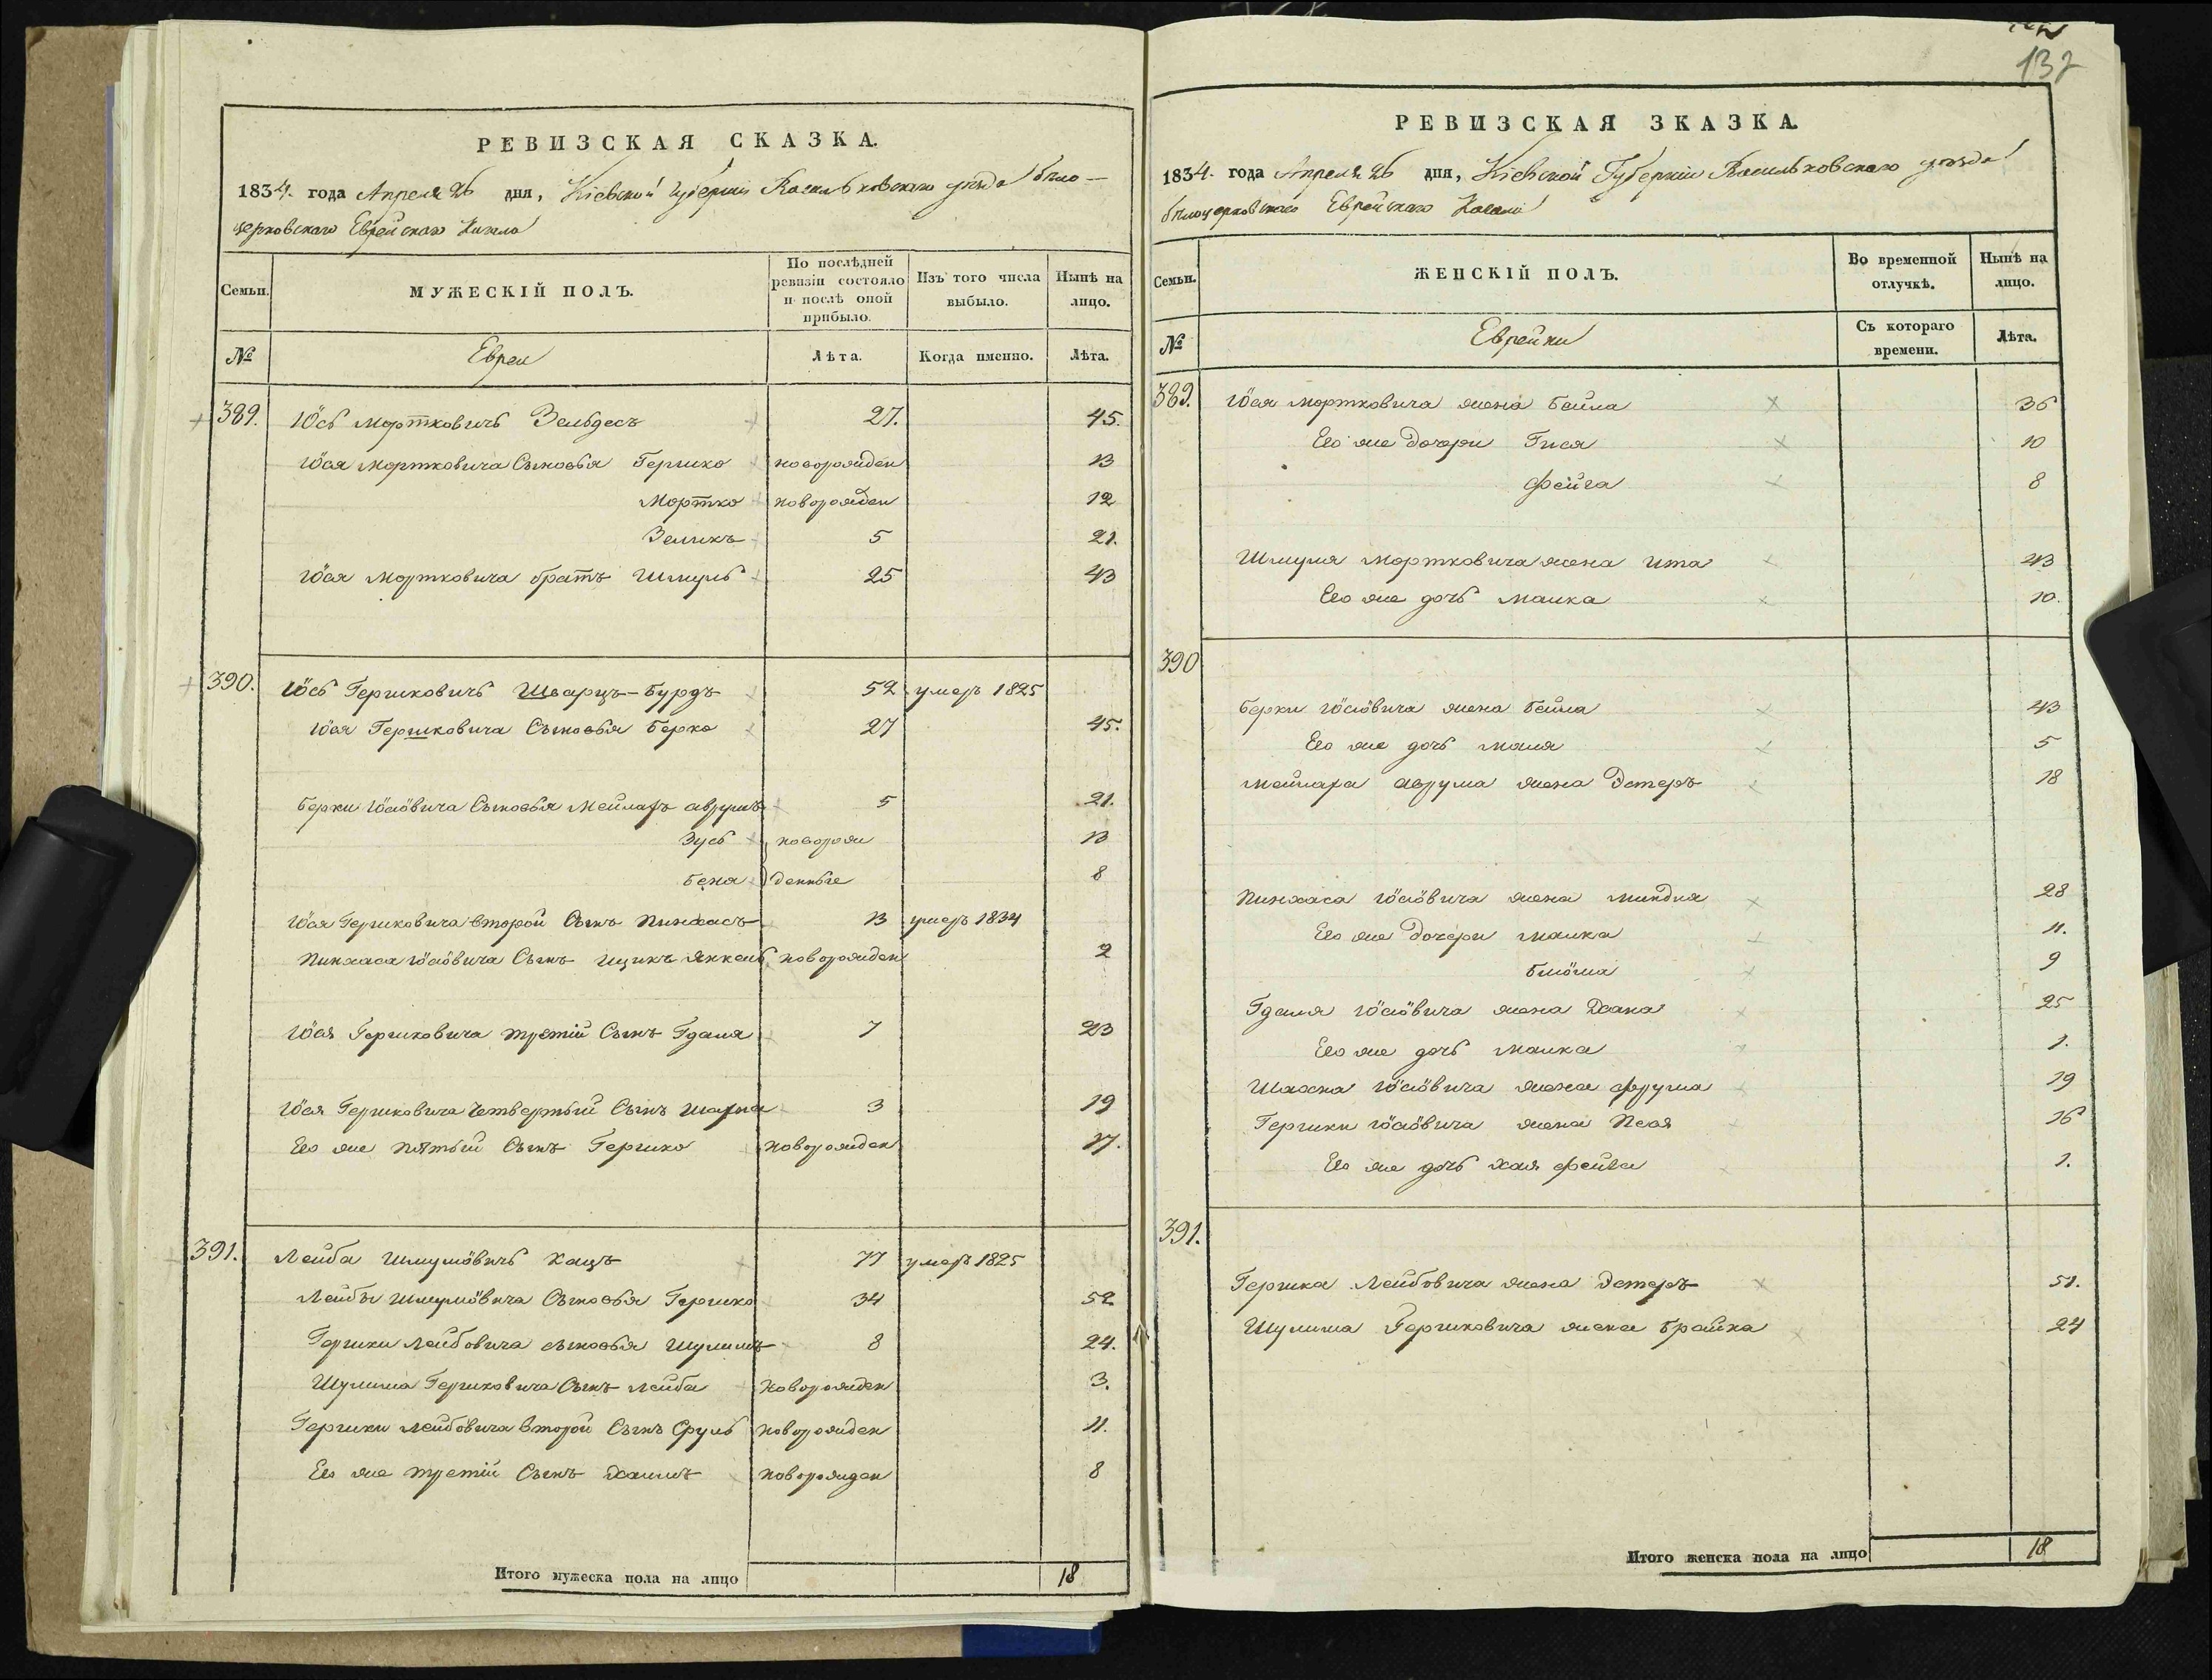 РЕВИЗСКАЯ СКАЗКА.
1834. года Апреля 26 дня, Кіевской Губерніи Васильковскаго уѣзда бѣло-
церковскаго Еврейскаго Кагала
Семьи.
МУЖЕСКІЙ ПОЛЪ.
По послѣдней
ревизіи состояло
и послѣ оной
прибыло.
Изъ того числа
выбыло.
Нынѣ на
лицо.
№
Евреи
Лѣта.
Когда именно.
Лѣта.
389. Іось Мортковичъ Зельдесъ 27. 45.
Іося Мортковича Сыновья Гершко новорожден 13
Мортко новорожден 12
Зеликъ 5 21.
Іося Мортковича братъ Шмуль 25 43
390. Іось Гершковичъ Шварцъ-бурдъ 52 умеръ 1825
Іося Гершковича Сыновья Берко 27 45.
Берки Іосіовича Сыновья Мейлахъ аврумъ 5 21.
Зусь новорож 13
Беня денные 8
Іося Гершковича второй Сынъ Пинхасъ 13 умеръ 1834
Пинхаса Іосіовича Сынъ Ицикъ Янкель новорожден 2
Іося Гершковича третій Сынъ Гдаля 7 23
Іося Гершковича четвертый Сынъ 3 19
Его же пятый Сынъ Гершко новорожден 17.
391. Лейба Шмуліовичъ Кацъ 77 умеръ 1825
Лейбы Шмуліовича Сыновья Гершко 34 52
Гершки Лейбовича сыновья Шулимъ 8 24.
Шулима Гершковича Сынъ Лейба новорожден 3.
Гершки Лейбовича второй Сынъ Сруль новорожден 11.
Его же третій Сынъ Хаимъ новорожден 8
Итого мужеска пола на лицо 18
132
РЕВИЗСКАЯ ЗКАЗКА.
1834. года Апреля 26 дня, Кіевской Губерніи Васильковскаго уѣзда
бѣлоцерковскаго Еврейскаго Кагала
Семьи.
ЖЕНСКІЙ ПОЛЪ.
Во временной
отлучкѣ.
Нынѣ на
лицо.
№
Еврейки
Съ котораго
времени.
Лѣта.
389. Іося Мортковича жена Бейла 36
Его же дочери Гися 10
Фейга 8
Шмуля Мортковича жена Ита 43
Его же дочь Малка 10.
390
Берки Іосіовича жена Бейла 43
Его же дочь Маля 5
Мейлаха аврума жена Эстеръ 18
Пинхаса Іосіовича жена Миндля 28
Его же дочери Малка 11.
Бліома 9
Гдаля Іосіовича жена Хана 25
Его же дочь Малка 1.
Іосіовича жена Фрума 19
Гершки Іосіовича жена Песя 16
Его же дочь Хая Фейга 1.
391.
Гершка Лейбовича жена Эстеръ 51.
Шулима Гершковича жена Брайна 24
Итого женска пола на лицо 18